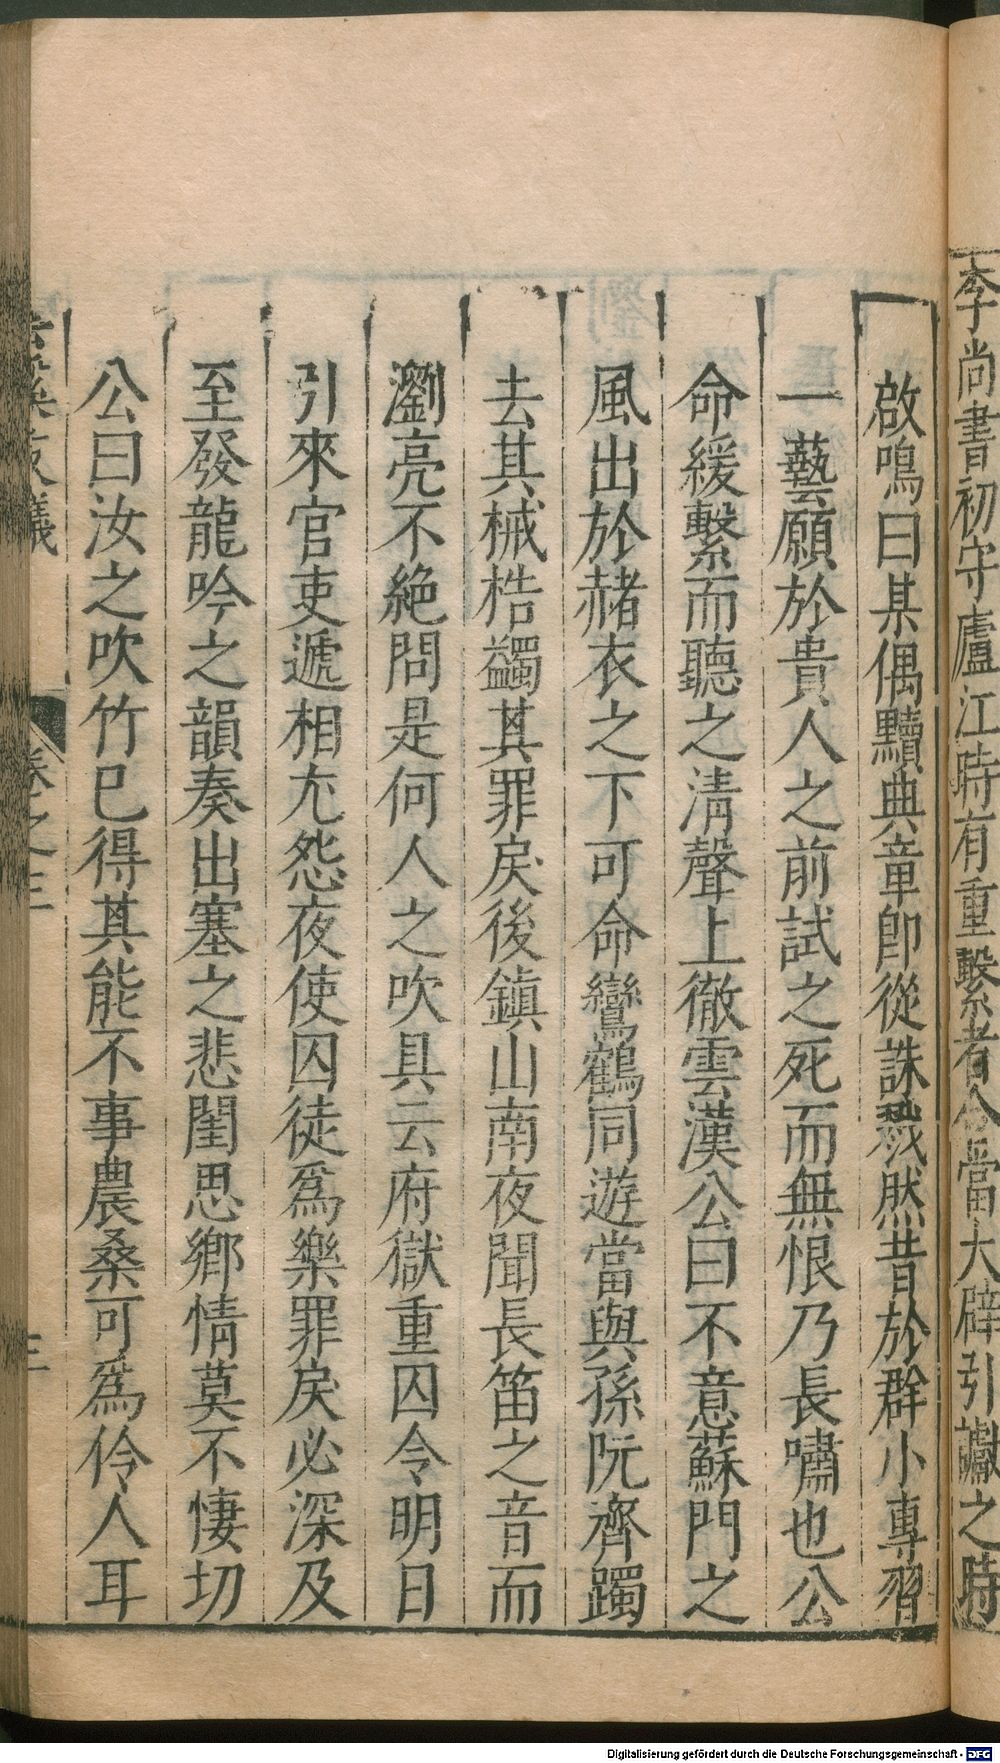 李尚書初守廬江時有重繫者合當大辟引讞之時
啟鳴曰某偶黷典章卽從誅戮然昔於群小專習
一藝願於貴人之前試之死而無恨乃長嘯也公
命緩繫而聽之清聲上徹雲漢公曰不意蘇門之
風出於赭衣之下可命鸞鶴同遊當與孫阮齊躅
去其械梏蠲其罪戾後鎮山南夜聞長笛之音而
瀏亮不絕問是何人之吹具云府獄重囚令明日
引來官吏遞相尤怨夜使囚徒爲樂罪戾必深及
至發龍吟之韻奏出塞之悲閨思鄉情莫不悽切
公曰汝之吹竹已得其能不事農桑可爲伶人耳
雲溪友議
卷之三
三
Digitalisierung gefördert durch die Deutsche Forschungsgemeinschaft - DFG